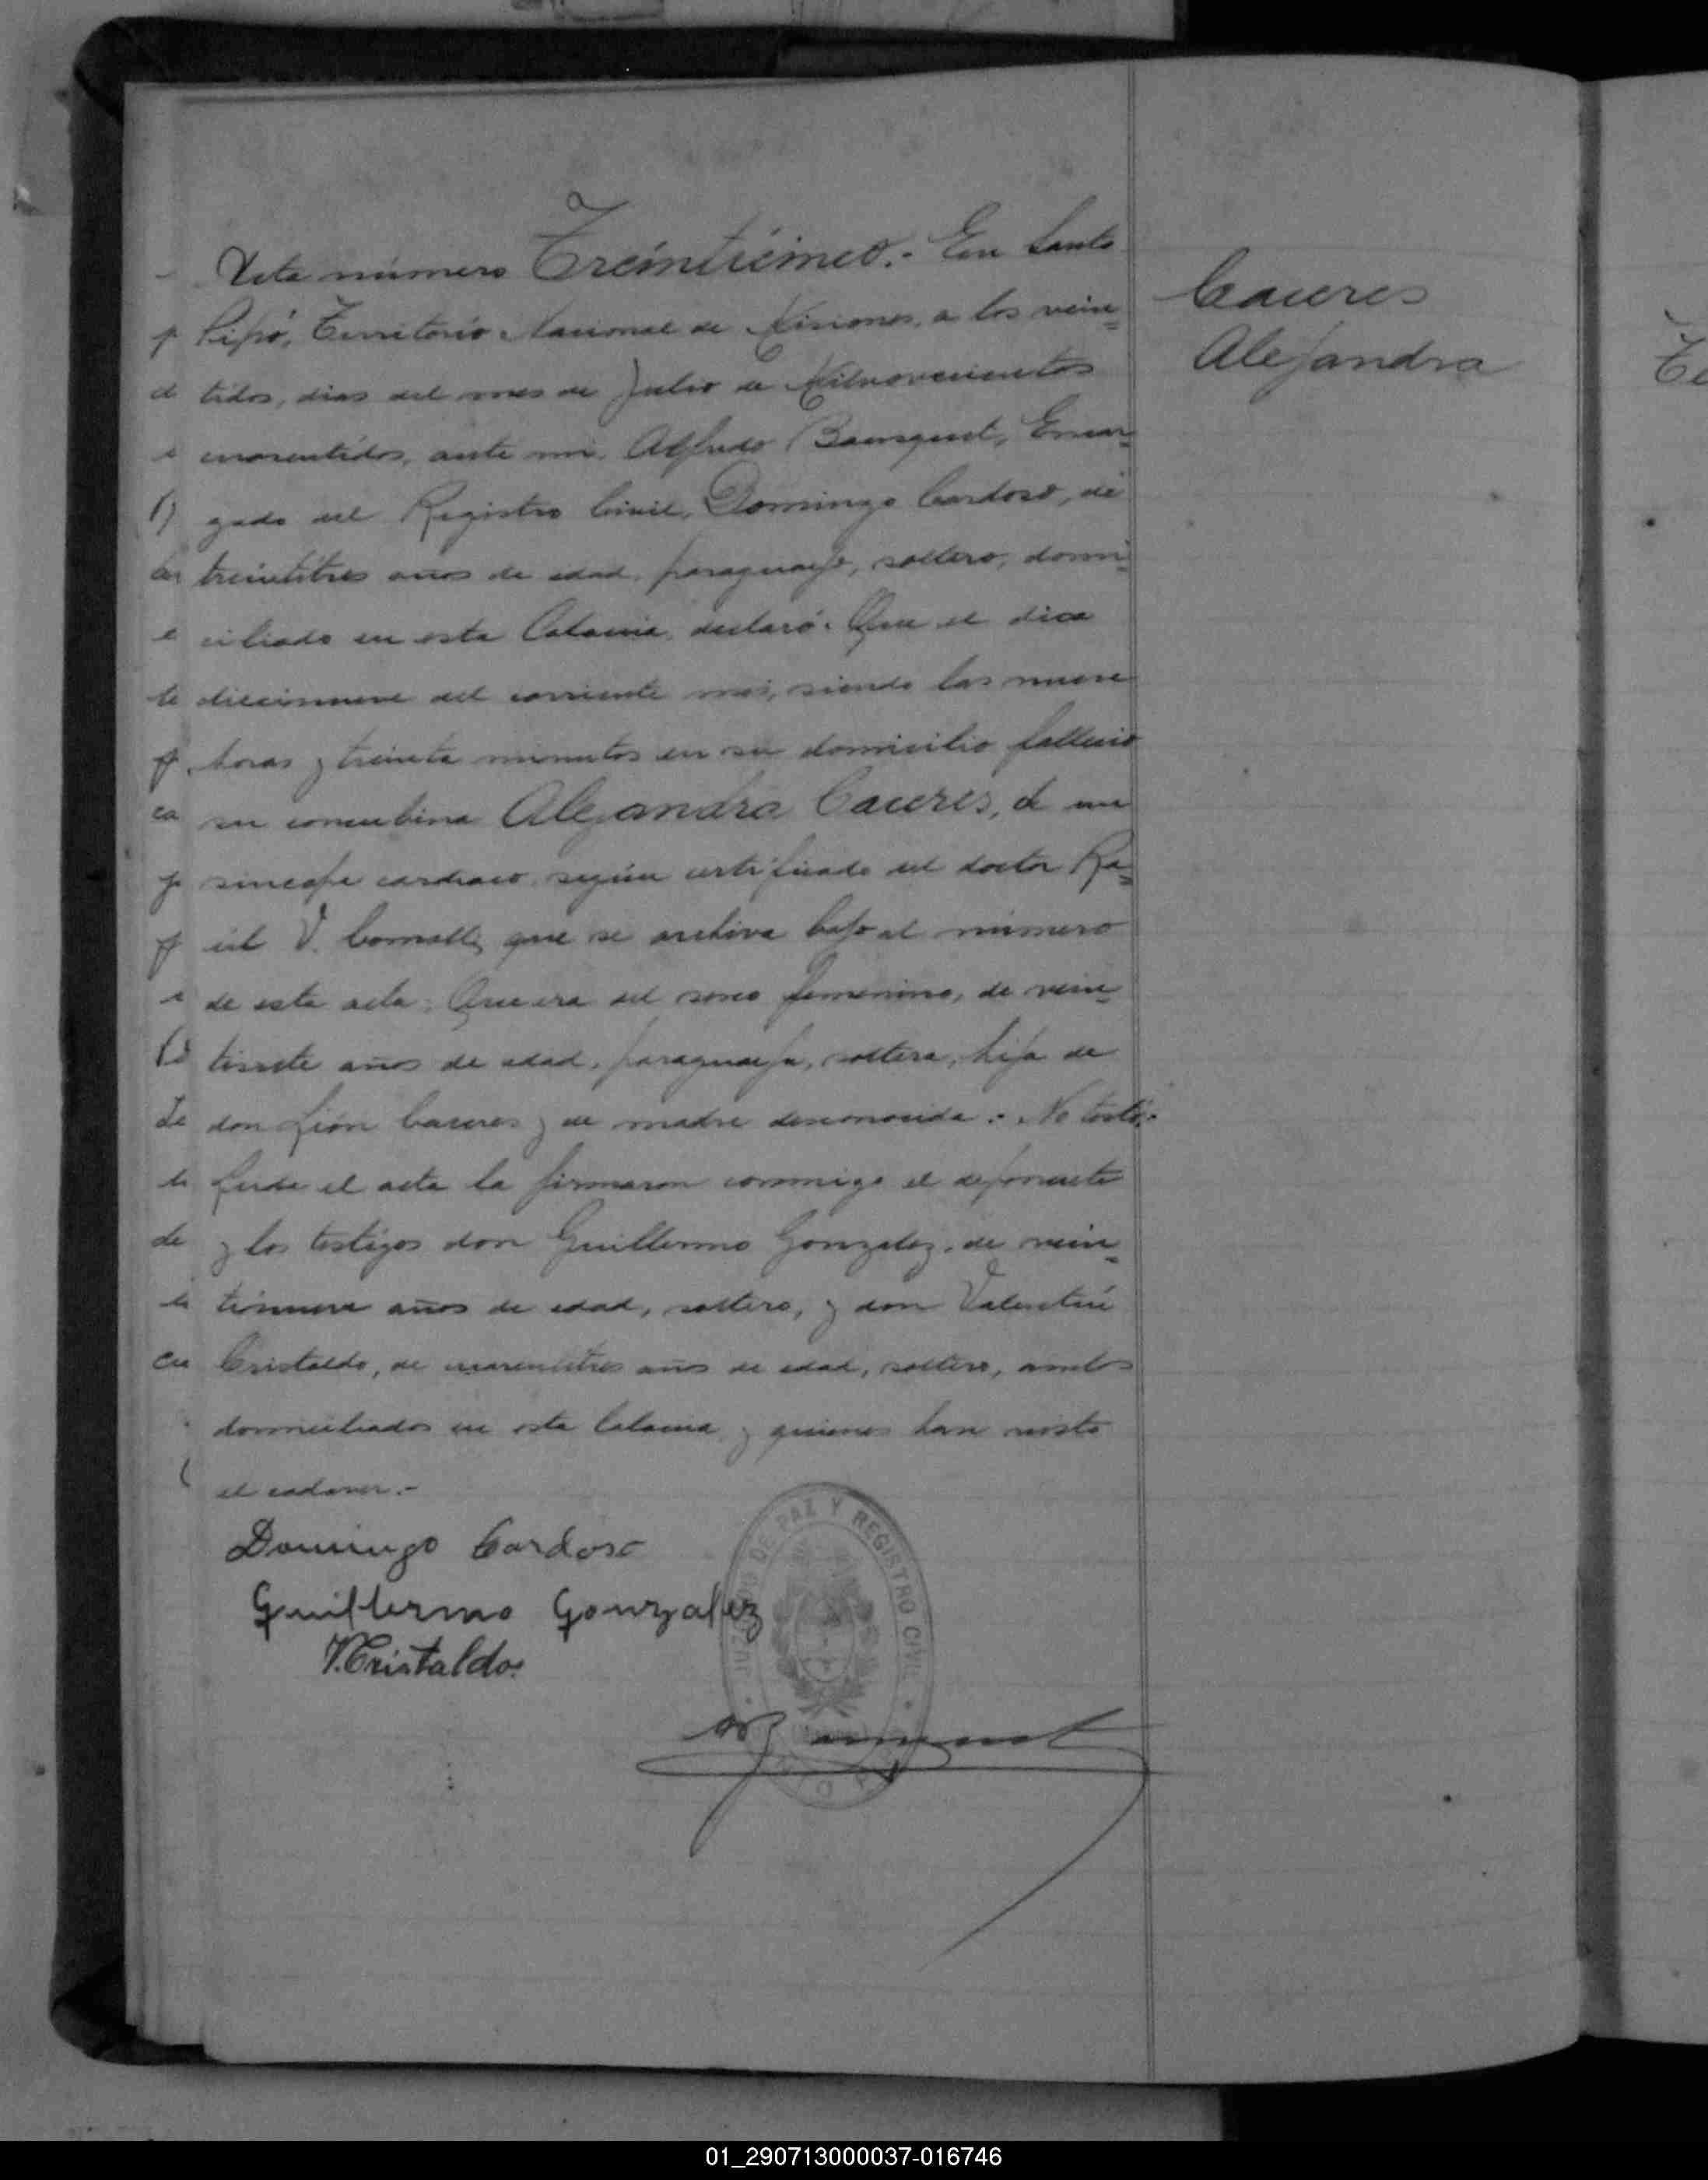 Acta número Treinticinco.- En Santo
Pipó, Territorio Nacional de Misiones, a los vein=
tidos, dias del mes de Julio de Milnovecientos
cuarentidos, ante mi, Alfredo Bansquet, Encar=
gado del Registro Civil, Domingo Cardoso, de
treintitres años de edad, paraguayo, soltero, domi=
ciliado en esta Colonia, declaró: Que el dia
diecinueve del corriente mes, siendo las nueve
horas y treinta minutos en su domicilio fallecio
su concubina Alejandra Caceres, de un
sincope cardiaco, según certificado del doctor Ra=
úl V. que se archiva bajo el número
de esta acta; Que era del sexo femenino, de vein=
tisiete años de edad, paraguaya, soltera, hija de
don Caceres y de madre desconocida.- No testó.-
Leida el acta la firmaron conmigo el deponente
y los testigos don Guillermo Gonzalez, de vein=
tinueve años de edad, soltero, y don Valentin
Cristaldo, de cuarentitres años de edad, soltero, ambos
domiciliados en esta Colonia y quienes han visto
el cadaver.-
Caceres
Alejandra
Domingo Cardoso
Guillermo Gonzalez
V. Cristaldo
JUZGADO DE PAZ Y REGISTRO CIVIL
01_290713000037-016746